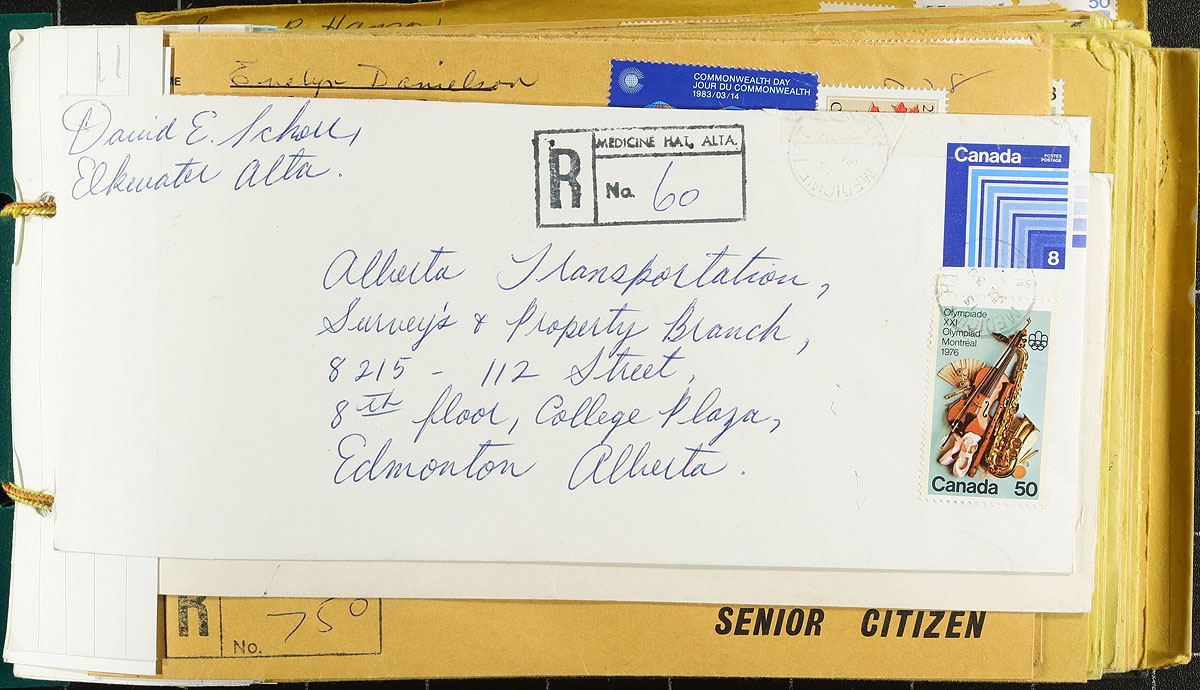 R. Hanson
50
11
ME
Evelyn Danielson
COMMONWEALTH DAY
JOUR DU COMMONWEALTH
1983/03/14
David E. Scholl,
Elkwater Alta.
R
MEDICINE HAT, ALTA.
No. 60
MEDICINE
Canada
POSTES
POSTAGE
8
Alberta Transportation,
Survey's & Property Branch,
8215 - 112 Street,
8th floor, College Plaza,
Edmonton Alberta.
Olympiade
XXI
Olympiad
Montréal
1976
Canada 50
R
No. 750
SENIOR CITIZEN